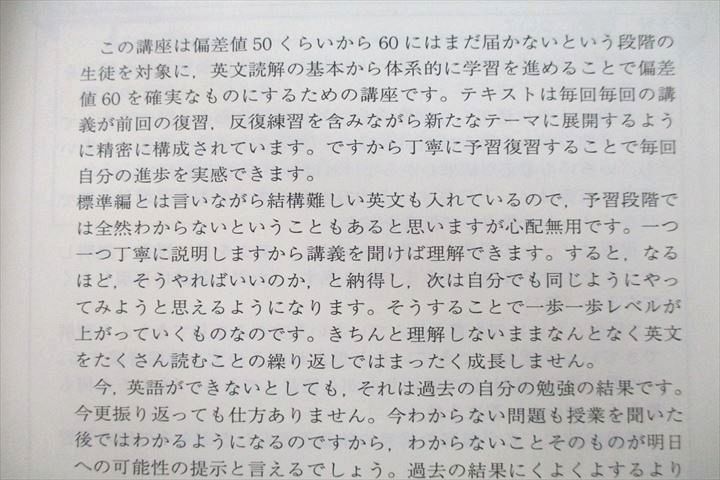 この講座は偏差値50くらいから60にはまだ届かないという段階の
生徒を対象に，英文読解の基本から体系的に学習を進めることで偏差
値60を確実なものにするための講座です。テキストは毎回毎回の講
義が前回の復習，反復練習を含みながら新たなテーマに展開するよう
に精密に構成されています。ですから丁寧に予習復習することで毎回
自分の進歩を実感できます。
標準編とは言いながら結構難しい英文も入れているので，予習段階で
は全然わからないということもあると思いますが心配無用です。一つ
一つ丁寧に説明しますから講義を聞けば理解できます。すると，なる
ほど，そうやればいいのか，と納得し，次は自分でも同じようにやっ
てみようと思えるようになります。そうすることで一歩一歩レベルが
上がっていくものなのです。きちんと理解しないままなんとなく英文
をたくさん読むことの繰り返しではまったく成長しません。
今，英語ができないとしても，それは過去の自分の勉強の結果です。
今更振り返っても仕方ありません。今わからない問題も授業を聞いた
後ではわかるようになるのですから，わからないことそのものが明日
への可能性の提示と言えるでしょう。過去の結果にくよくよするより